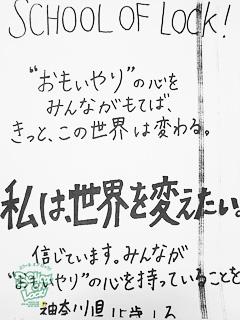 SCHOOL OF LOCK!
“おもいやり”の心を
みんながもてば、
きっと、この世界は変わる。
私は、世界を変えたい。
信じています。みんなが
“おもいやり”の心を持っていることを
神奈川県 15歳